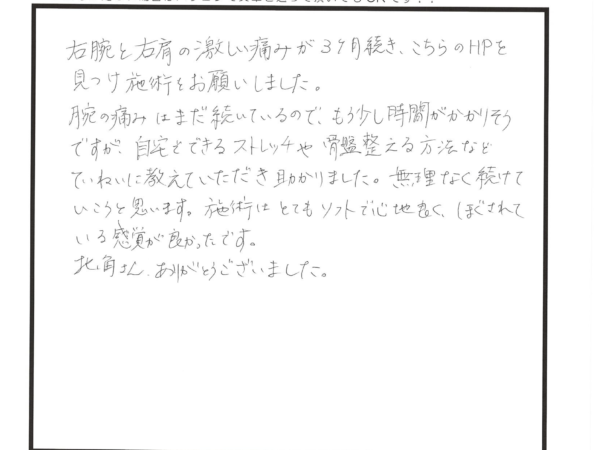 右腕と右肩の激しい痛みが3ケ月続き、こちらのHPを
見つけ施術をお願いしました。
腕の痛みはまだ続いているので、もう少し時間がかかりそう
ですが、自宅でできるストレッチや骨盤整える方法など
ていねいに教えていただき助かりました。無理なく続けて
いこうと思います。施術はとてもソフトで心地良く、ほぐされて
いる感覚が良かったです。
北角さん、ありがとうございました。